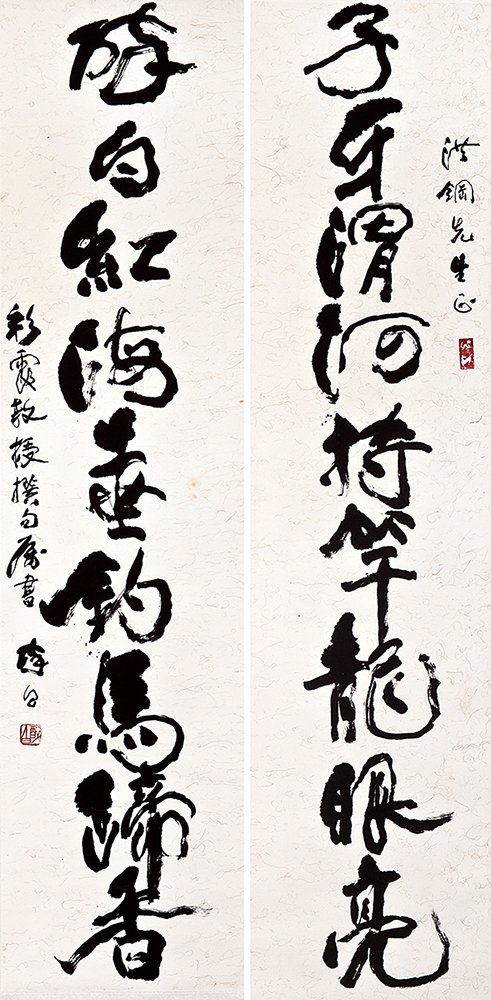 洪鋼先生正
子牙渭河持竿龍眼亮
白紅海垂釣馬蹄香
彩霞教授撰句屬書